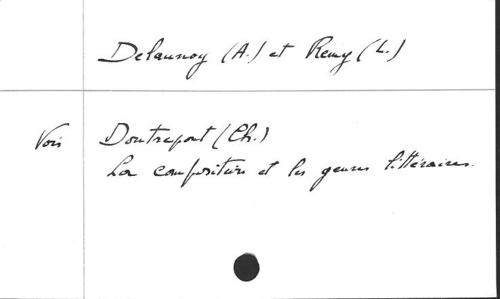 Delaunoy (A.) et Remy (L.)
Voir Doutrepont (Ch.)
La composition et les genres littéraires.